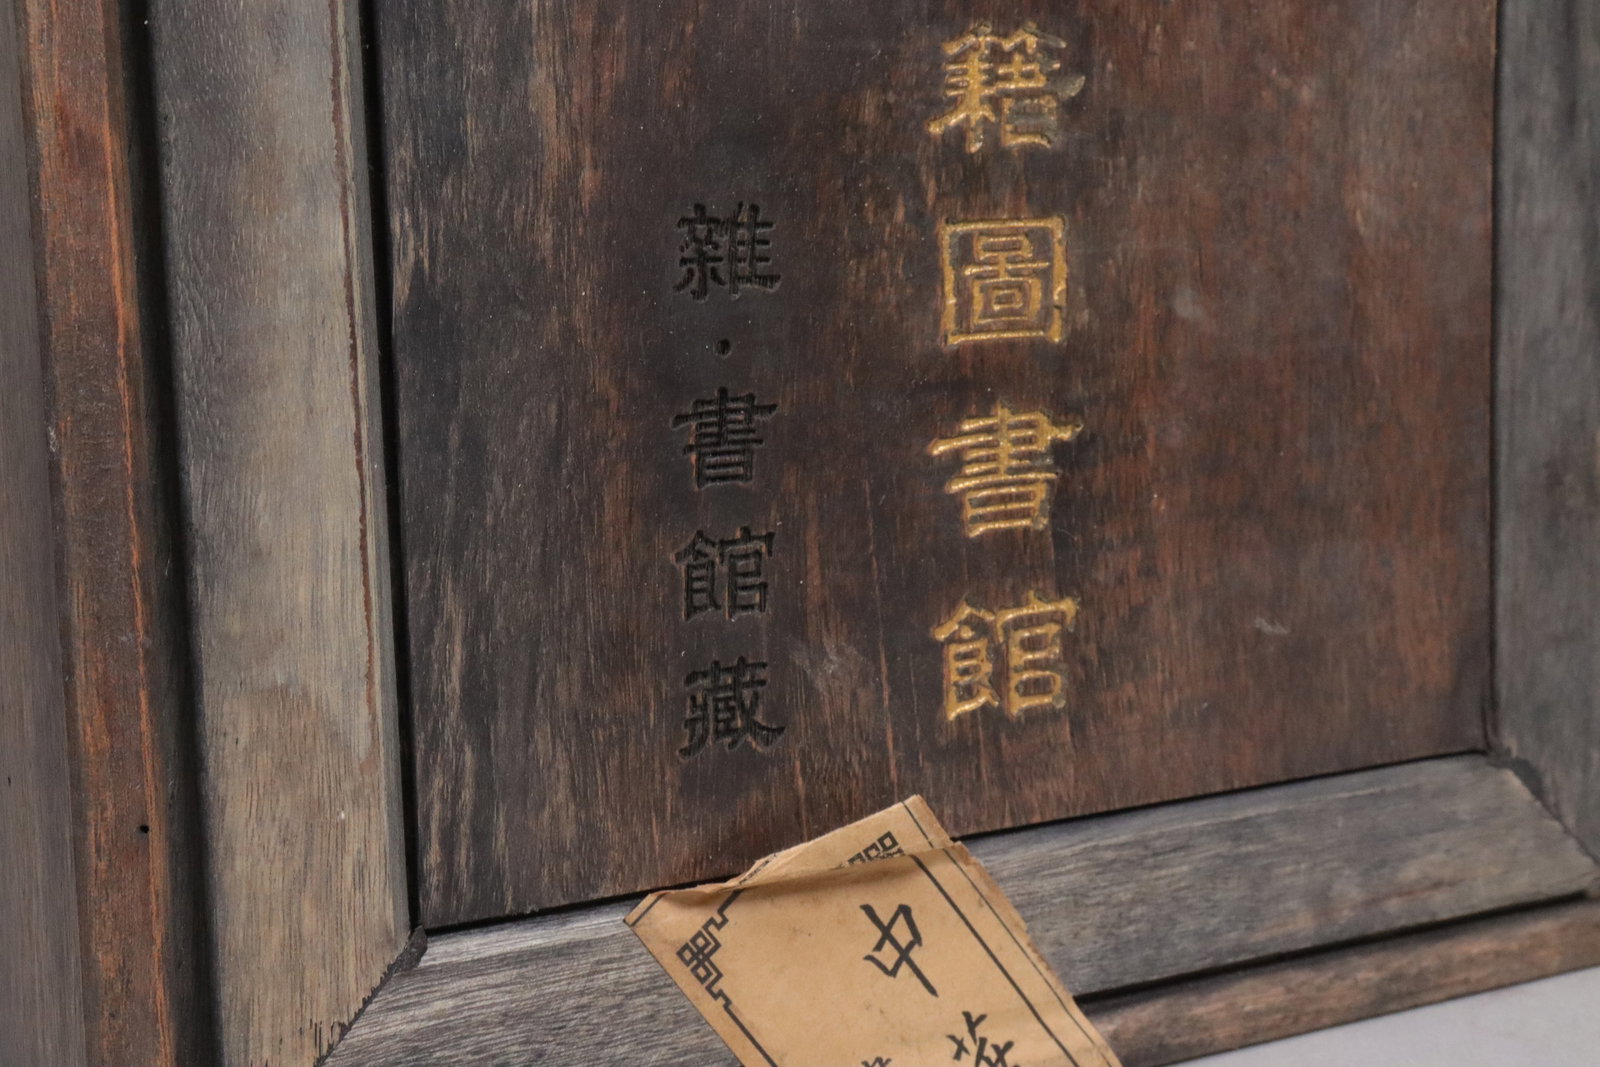 籍圖書館
雜·書館藏
中華